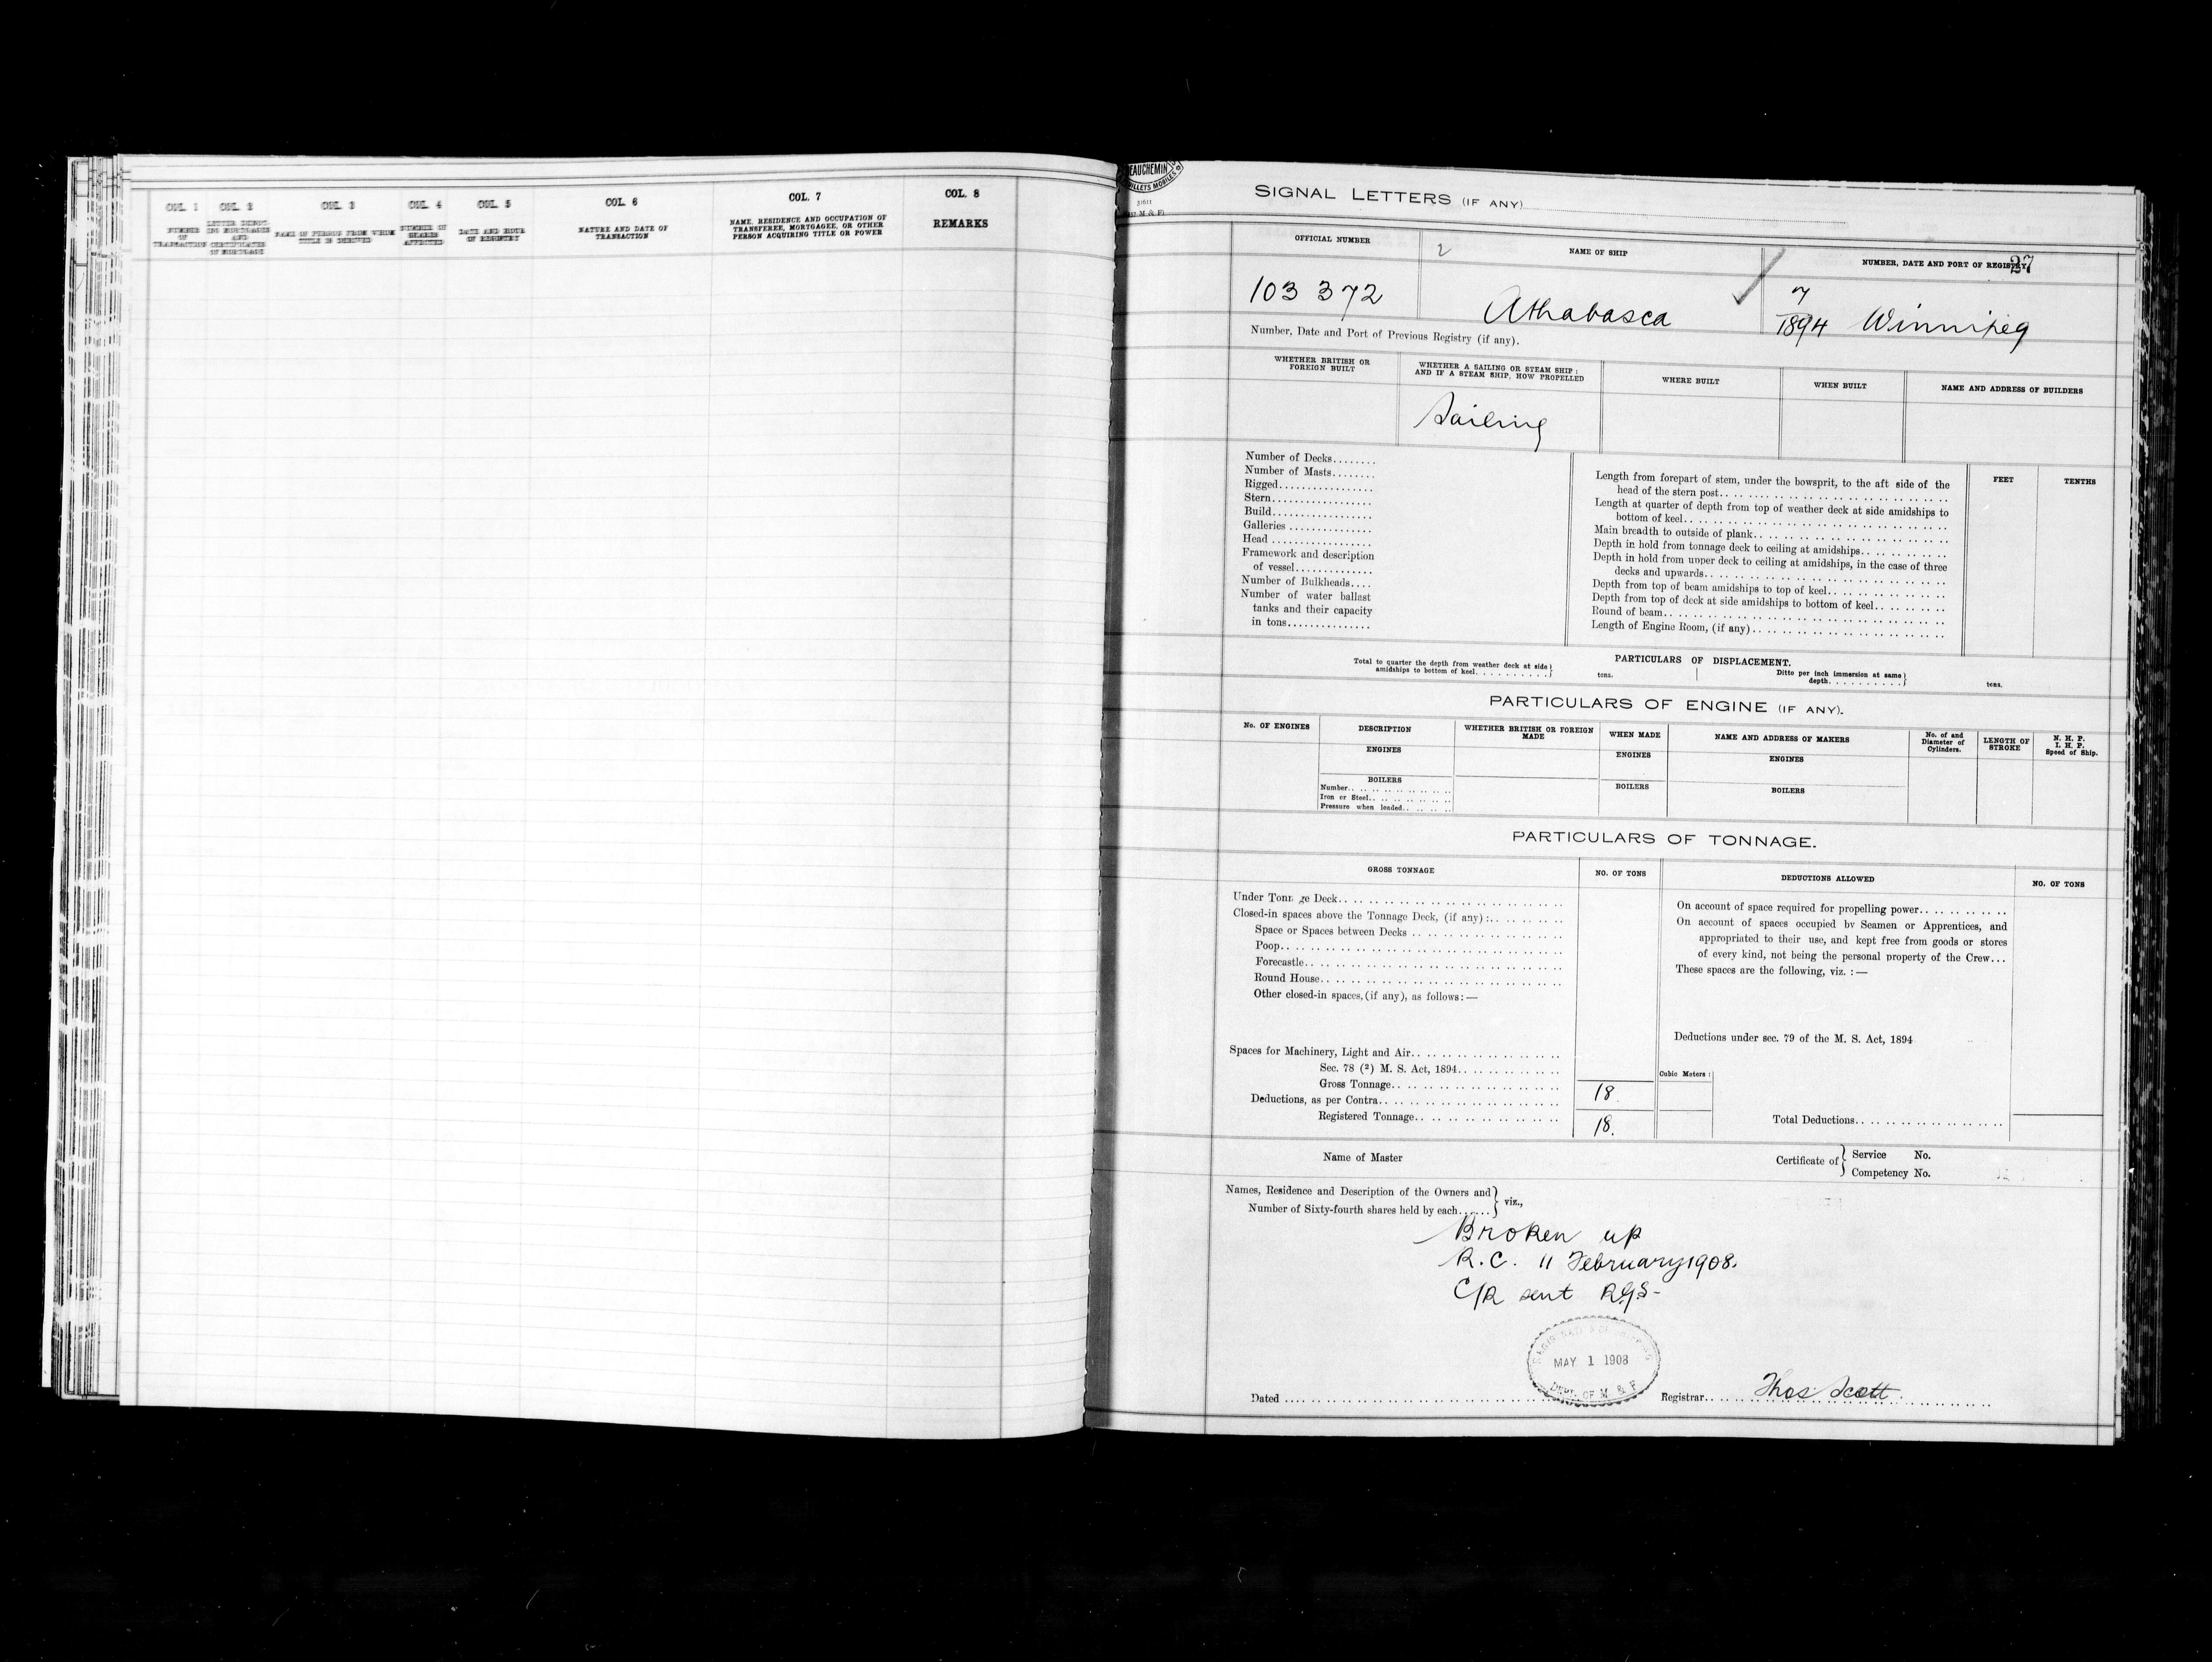 COL. 1
NUMBER OF TRANSACTION
COL. 2
LETTER DENOTING MORTGAGES AND CERTIFICATES OF MORTGAGE
COL. 3
NAME OF PERSON FROM WHOM TITLE IS DERIVED
COL. 4
NUMBER OF SHARES AFFECTED
COL. 5
DATE AND HOUR OF REGISTRY
COL. 6
NATURE AND DATE OF TRANSACTION
COL. 7
NAME, RESIDENCE AND OCCUPATION OF TRANSFEREE, MORTGAGEE, OR OTHER PERSON ACQUIRING TITLE OR POWER
COL. 8
REMARKS
SIGNAL LETTERS (IF ANY)
27
OFFICIAL NUMBER
103 372
2
NAME OF SHIP
Athabasca
NUMBER, DATE AND PORT OF REGISTRY
7
1894 Winnipeg
Number, Date and Port of Previous Registry (if any).
WHETHER BRITISH OR FOREIGN BUILT
WHETHER A SAILING OR STEAM SHIP; AND IF A STEAM SHIP, HOW PROPELLED
Sailing
WHERE BUILT
WHEN BUILT
NAME AND ADDRESS OF BUILDERS
Number of Decks
Number of Masts
Rigged
Stern
Build
Galleries
Head
Framework and description
of vessel
Number of Bulkheads
Number of water ballast
tanks and their capacity
in tons
FEET
TENTHS
Length from forepart of stem, under the bowsprit, to the aft side of the
head of the stern post
Length at quarter of depth from top of weather deck at side amidships to
bottom of keel
Main breadth to outside of plank
Depth in hold from tonnage deck to ceiling at amidships
Depth in hold from upper deck to ceiling at amidships, in the case of three
decks and upwards
Depth from top of beam amidships to top of keel
Depth from top of deck at side amidships to bottom of keel
Round of beam
Length of Engine Room, (if any)
PARTICULARS OF DISPLACEMENT.
Total to quarter the depth from weather deck at side
amidships to bottom of keel
tons.
Ditto per inch immersion at same
depth
tons.
PARTICULARS OF ENGINE (IF ANY).
No. OF ENGINES
DESCRIPTION
WHETHER BRITISH OR FOREIGN MADE
WHEN MADE
NAME AND ADDRESS OF MAKERS
No. of and Diameter of Cylinders.
LENGTH OF STROKE
N. H. P.
I. H. P.
Speed of Ship.
ENGINES
ENGINES
ENGINES
BOILERS
BOILERS
BOILERS
Number
Iron or Steel
Pressure when loaded
PARTICULARS OF TONNAGE.
GROSS TONNAGE
NO. OF TONS
DEDUCTIONS ALLOWED
NO. OF TONS
Under Tonnage Deck
Closed-in spaces above the Tonnage Deck, (if any):
Space or Spaces between Decks
Poop
Forecastle
Round House
Other closed-in spaces, (if any), as follows:—
Spaces for Machinery, Light and Air
Sec. 78 (2) M. S. Act, 1894
Gross Tonnage
18
Deductions, as per Contra
Registered Tonnage
18.
On account of space required for propelling power
On account of spaces occupied by Seamen or Apprentices, and
appropriated to their use, and kept free from goods or stores
of every kind, not being the personal property of the Crew
These spaces are the following, viz.:—
Deductions under sec. 79 of the M. S. Act, 1894
Cubic Meters:
Total Deductions
Name of Master
Certificate of
Service No.
Competency No.
Names, Residence and Description of the Owners and
Number of Sixty-fourth shares held by each
viz.,
Broken up
R.C. 11 February 1908.
C/R sent RGS-
MAY 1 1908
DEPT. OF M & F
Dated
Registrar
Thos Scott